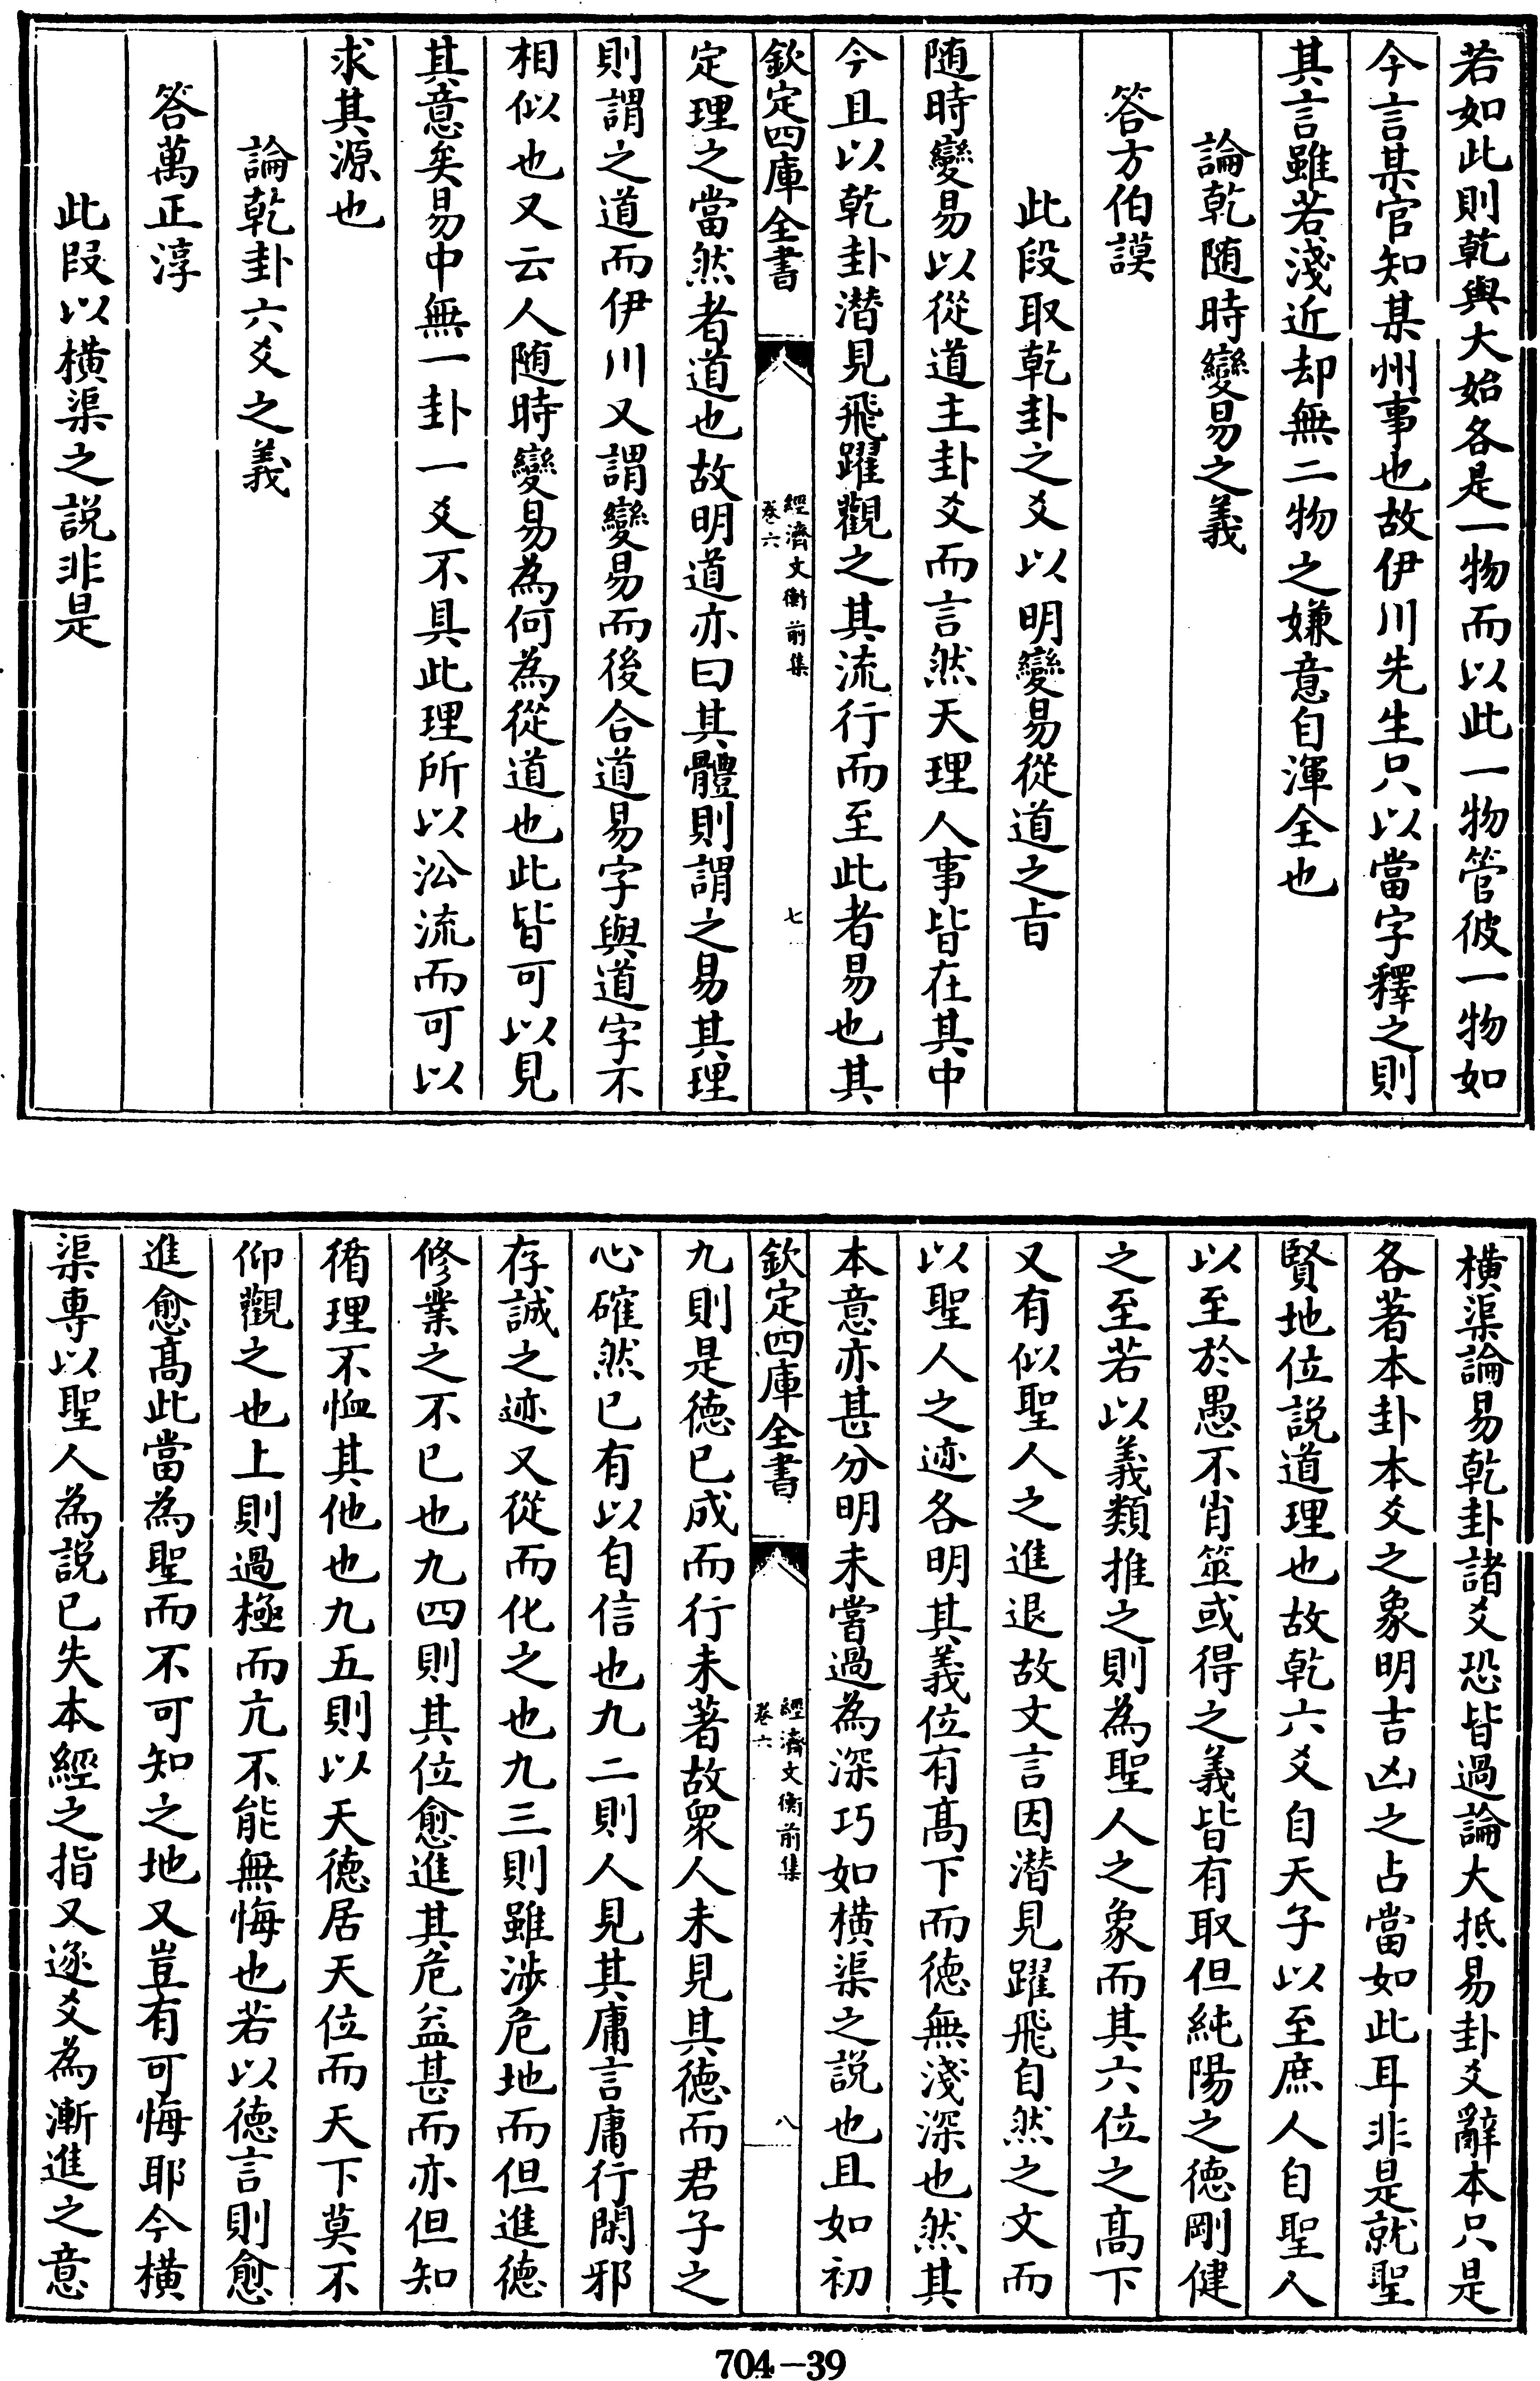 若如此則乾與大始各是一物而以此一物管彼一物如
今言某官知某州事也故伊川先生只以當字釋之則
其言雖若淺近却無二物之嫌意自渾全也
論乾随時變易之義
答方伯謨
此段取乾卦之爻以明變易從道之旨
随時變易以從道主卦爻而言然天理人事皆在其中
今且以乾卦潛見飛躍觀之其流行而至此者易也其
欽定四庫全書
經濟文衡前集
卷六
七
定理之當然者道也故明道亦曰其體則謂之易其理
則謂之道而伊川又謂變易而後合道易字與道字不
相似也又云人随時變易為何為從道也此皆可以見
其意矣易中無一卦一爻不具此理所以㳂流而可以
求其源也
論乾卦六爻之義
答萬正淳
此段以橫渠之説非是
橫渠論易乾卦諸爻恐皆過論大抵易卦爻辭本只是
各著本卦本爻之象明吉凶之占當如此耳非是就聖
賢地位説道理也故乾六爻自天子以至庶人自聖人
以至於愚不肖筮或得之義皆有取但純陽之德剛健
之至若以義類推之則為聖人之象而其六位之髙下
又有似聖人之進退故文言因潛見躍飛自然之文而
以聖人之迹各明其義位有髙下而德無淺深也然其
本意亦甚分明未嘗過為深巧如橫渠之説也且如初
欽定四庫全書
經濟文衡前集
卷六
八
九則是德已成而行未著故衆人未見其德而君子之
心確然已有以自信也九二則人見其庸言庸行閑邪
存誠之迹又從而化之也九三則雖涉危地而但進德
修業之不已也九四則其位愈進其危益甚而亦但知
循理不恤其他也九五則以天德居天位而天下莫不
仰觀之也上則過極而亢不能無悔也若以德言則愈
進愈髙此當為聖而不可知之地又豈有可悔耶今橫
渠專以聖人為説已失本經之指又逐爻為漸進之意
704-39